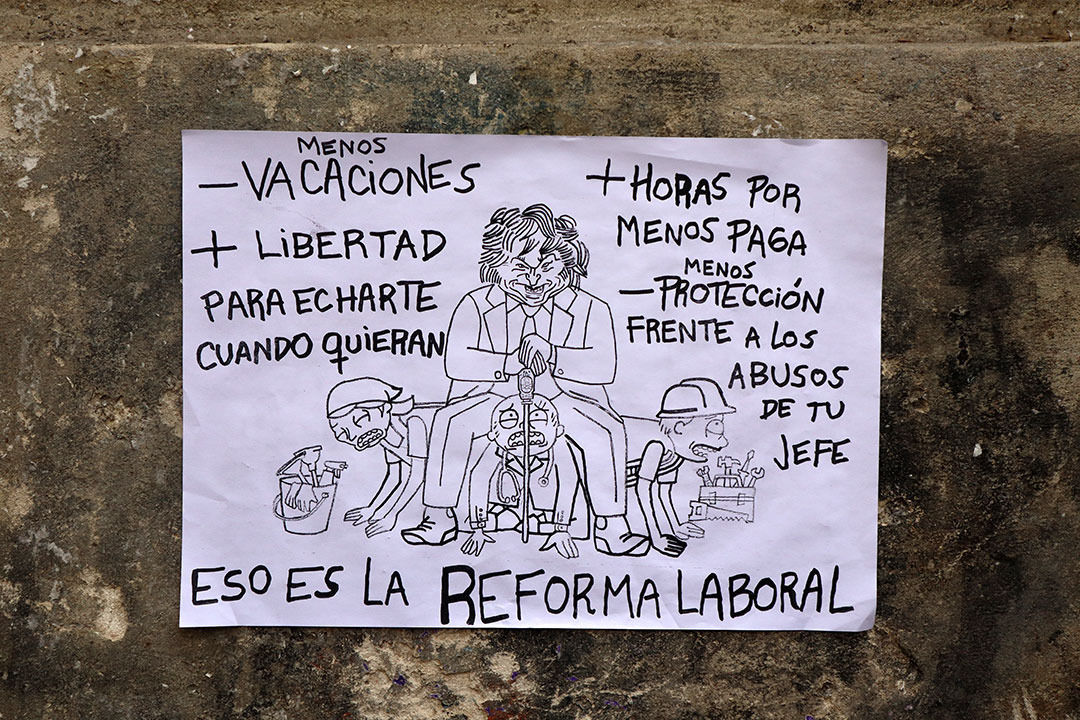 MENOS
- VACACIONES
+ LIBERTAD
PARA ECHARTE
CUANDO QUIERAN
+ HORAS POR
MENOS PAGA
MENOS
- PROTECCIÓN
FRENTE A LOS
ABUSOS
DE TU
JEFE
ESO ES LA REFORMA LABORAL